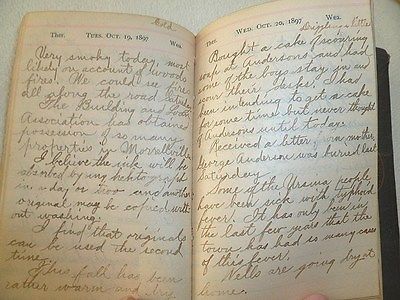 Cold
THER. TUES. OCT. 19, 1897 WEA.
Very smoky today, most
likely on account of woods
fires. We could see fires
all along the road Saturday
The Building and Loan
Association has obtained
possession of so many
properties in Morrellville
I believe the ink will be
absorbed by my hektograph
in a day or two and another
original may be copied with
out washing.
I find that originals
can be used the second
time.
This fall has been
rather warm and dry
THER. WED. OCT. 20, 1897 WEA.
Drizzling a little
Bought a cake of scouring
soap at Andersons and had
some of the boys stay in and
scour their desks. I had
been intending to get a cake
for some time but never thought
of Andersons until today.
Received a letter from mother
George Anderson was buried last
Saturday.
Some of the Ursina people
have been sick with typhoid
fever. It has only been in
the last few years that the
town has had so many cases
of this fever.
Nells are going by at
home.